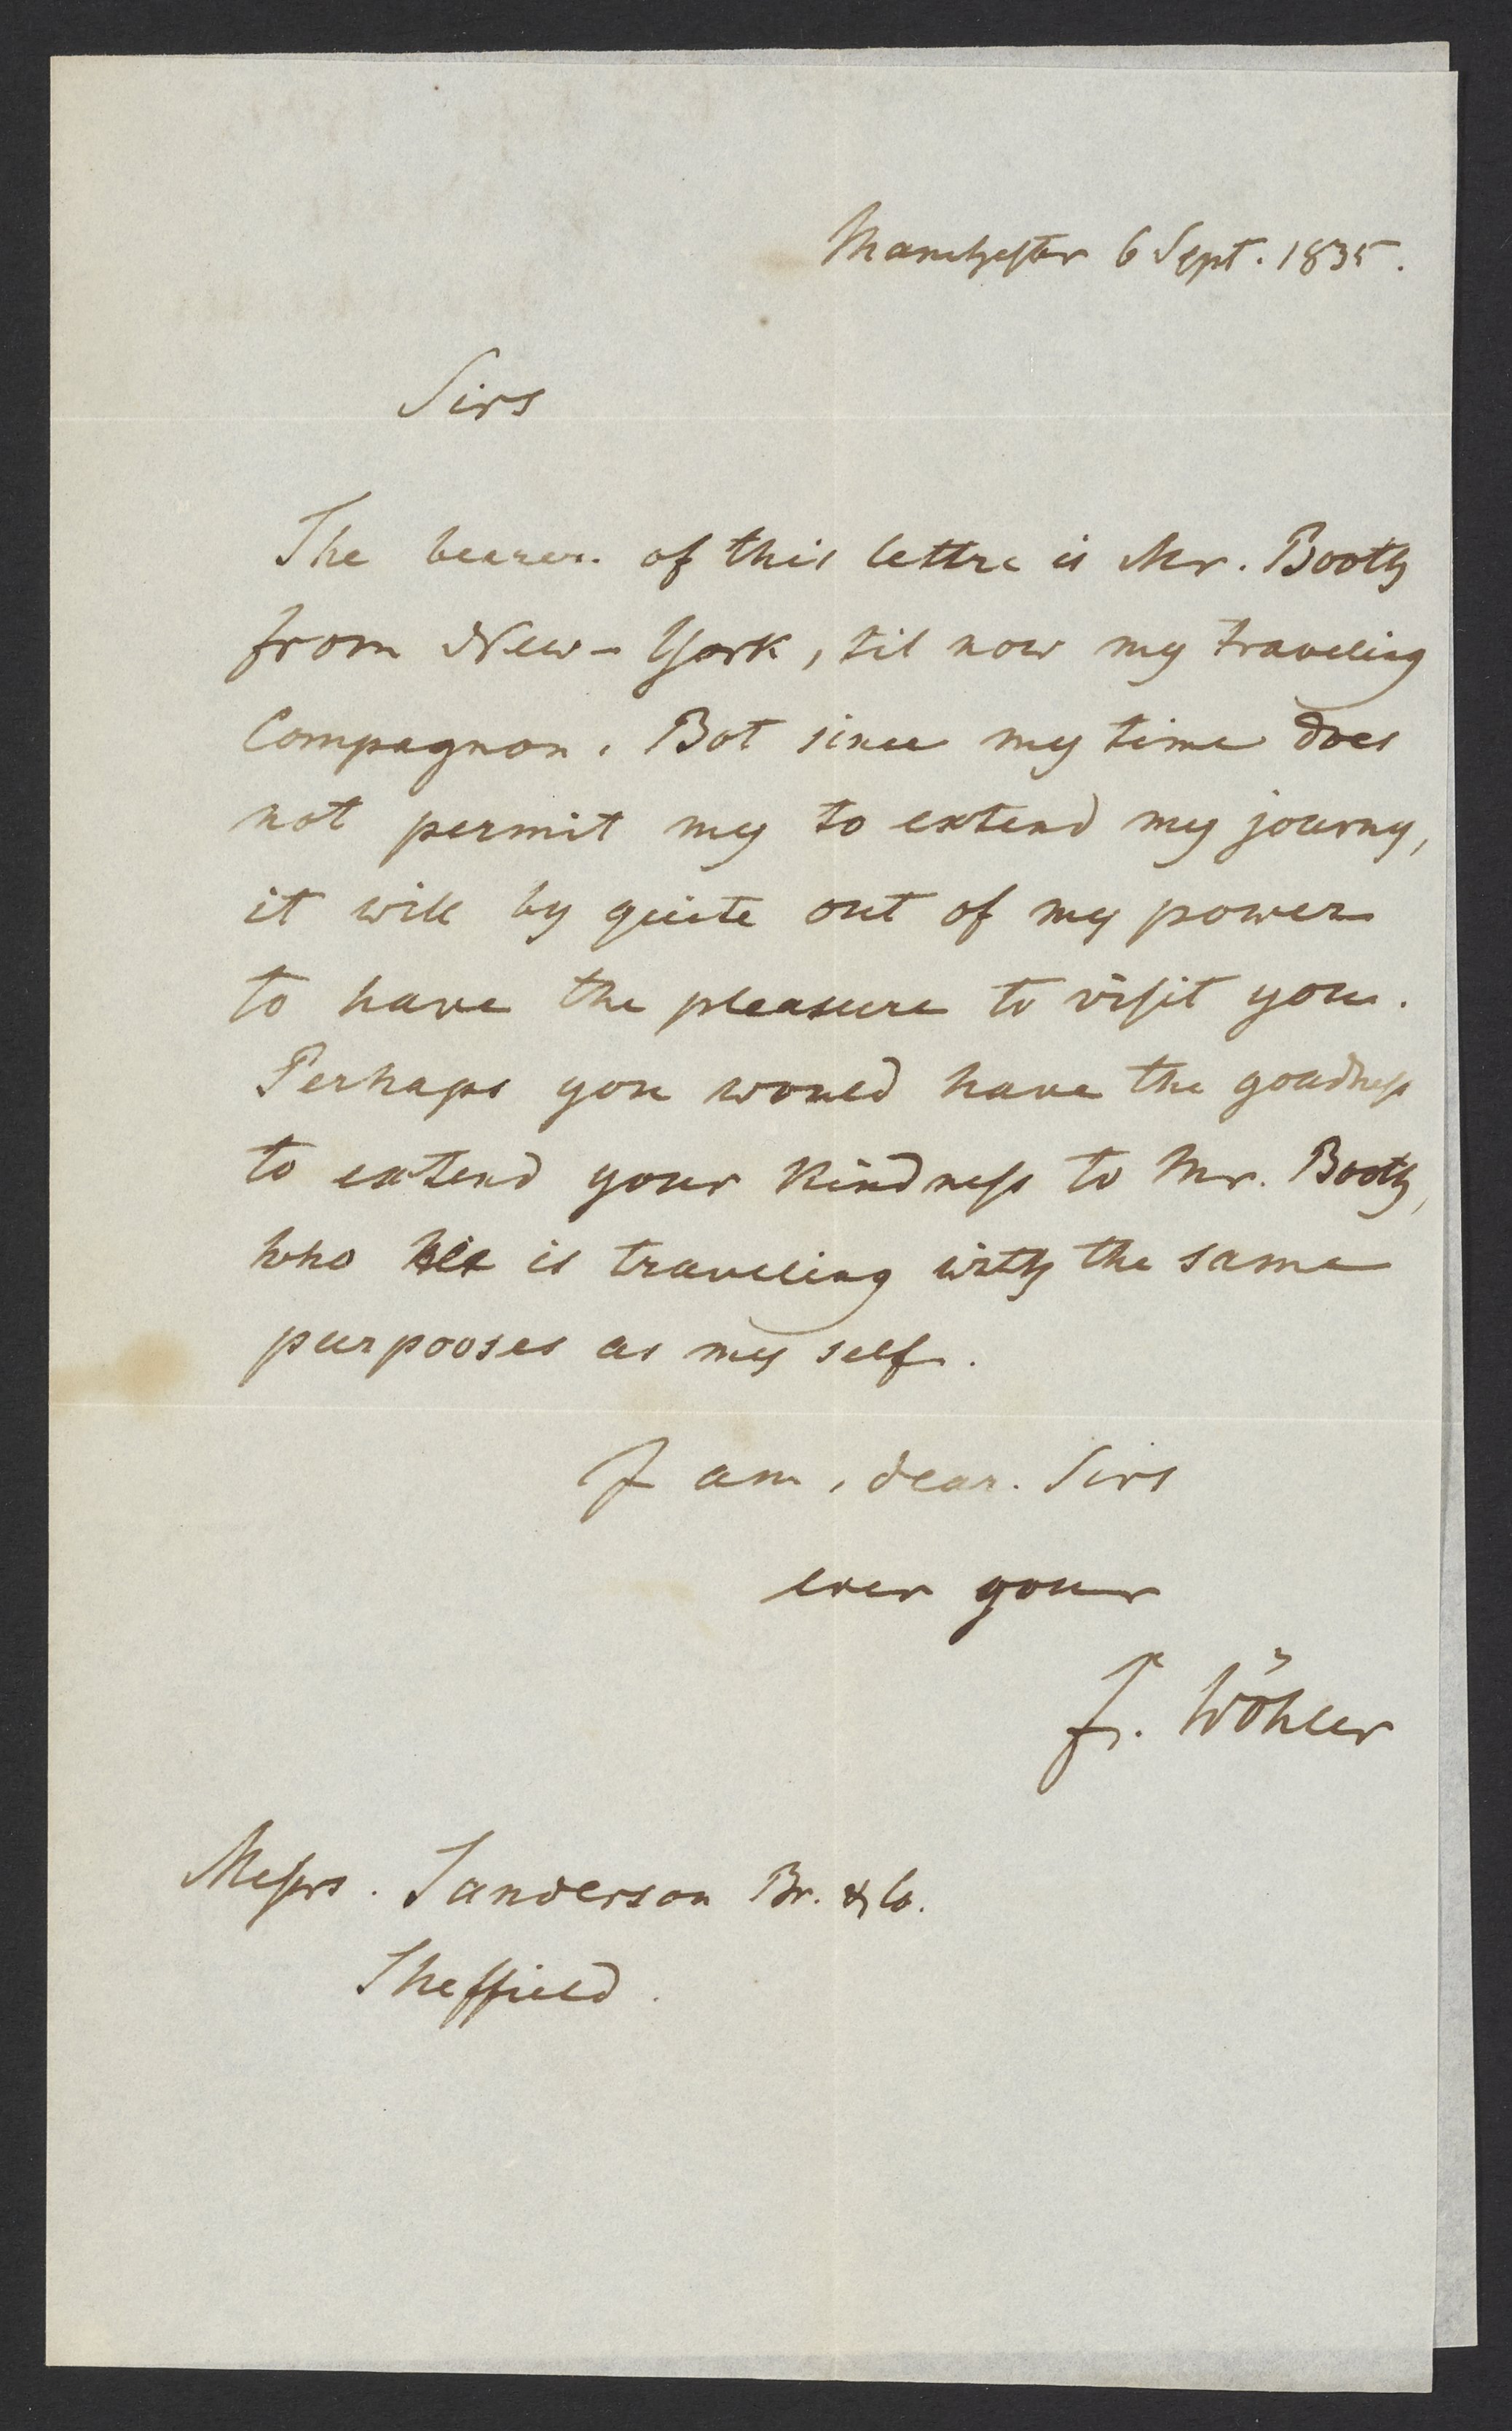 Manchester 6 Sept. 1835.
Sirs
The bearer of this lettre is Mr. Booth
from New-York, til now my traveling
Compagnon. Bot since my time does
not permit my to extend my journy,
it will by quite out of my power
to have the pleasure to visit you.
Perhaps you would have the goodness
to extend your kindness to Mr. Booth,
who is traveling with the same
purpooses as my self.
I am, dear Sirs
ever your
F. Wöhler
Messrs. Sanderson Br. & Co.
Sheffield.